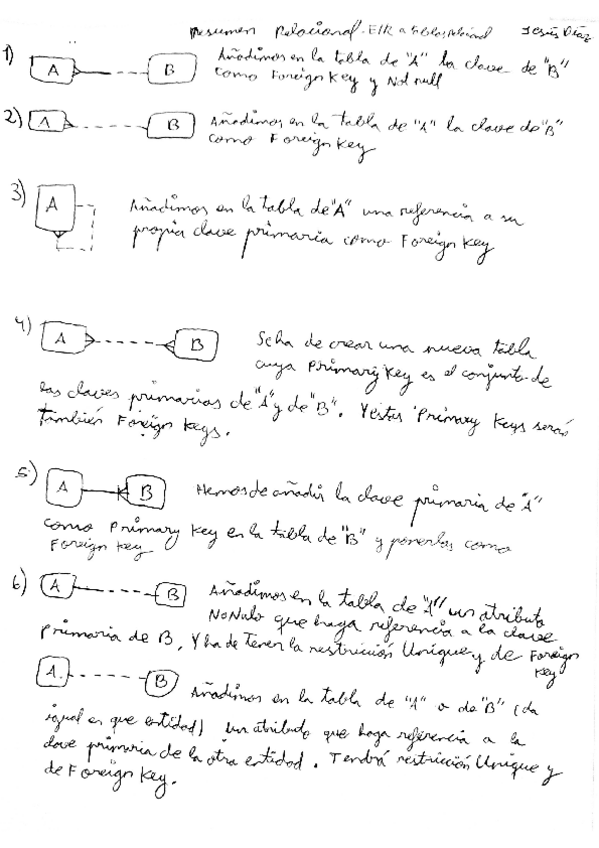 Resumen Relacional - E/R a tablas relacional Jesús Díaz
1) A B Añadimos en la tabla de "A" la clave de "B"
como Foreign Key y Not null
2) A B Añadimos en la tabla de "A" la clave de "B"
como Foreign Key
3) A Añadimos en la tabla de "A" una referencia a su
propia clave primaria como Foreign Key
4) A B Se ha de crear una nueva tabla
cuya Primary Key es el conjunto de
las claves primarias de "A" y de "B". Y estas Primary Keys serán
también Foreign Keys.
5) A B Hemos de añadir la clave primaria de "A"
como Primary Key en la tabla de "B" y ponerlas como
Foreign Key
6) A B Añadimos en la tabla de "A" un atributo
NoNulo que haga referencia a la clave
primaria de B, Y ha de tener la restricción Unique y de Foreign
Key
A B Añadimos en la tabla de "A" o de "B" (da
igual en que entidad) un atributo que haga referencia a la
clave primaria de la otra entidad. Tendrá restricción Unique y
de Foreign Key.